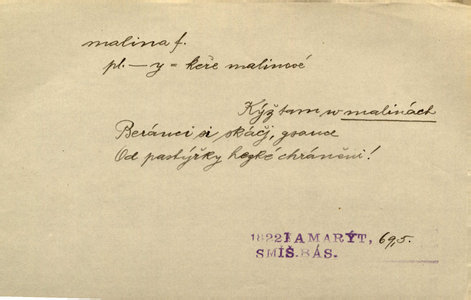 malina f.
pl. — y = keře malinové
Kýž tam w malinách
Beránci si skáčj, gsauce
Od pastýřky hezké chráněni!
1822 KAMARÝT, 69,5.
SMÍŠ. BÁS.